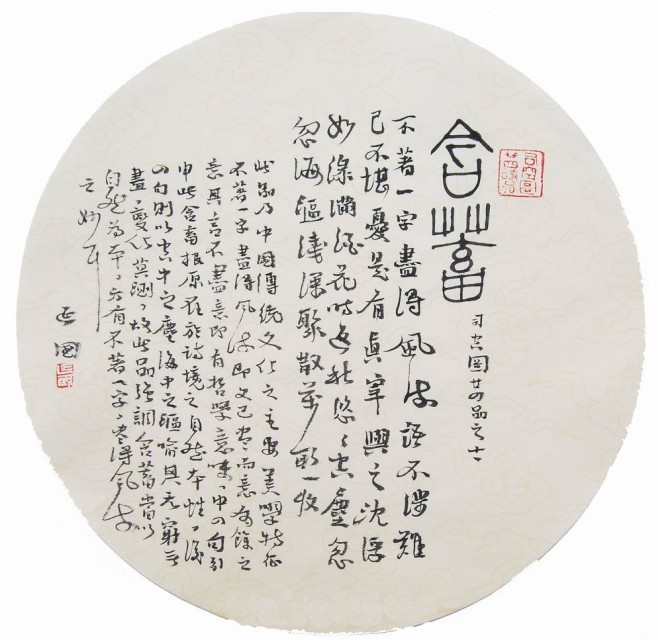 含蓄
司空圖廿四品之十一
不著一字盡得風流語不涉難
已不堪憂是有真宰與之沈浮
如淥滿酒花時返秋悠悠空塵忽
忽海漚淺深聚散萬取一收
此品乃中國傳統文化之主要美學特征
不著一字盡得風流即文已盡而意有餘之
意其言不盡意即有哲學意味、中四句引
申此含蓄根原在於詩境之自然本性、後
四句則以空中之塵海中之漚喻其無窮無
盡、變化莫測、故此品強調含蓄當以
自然為本、方有不著一字、盡得風流
之妙耳
國